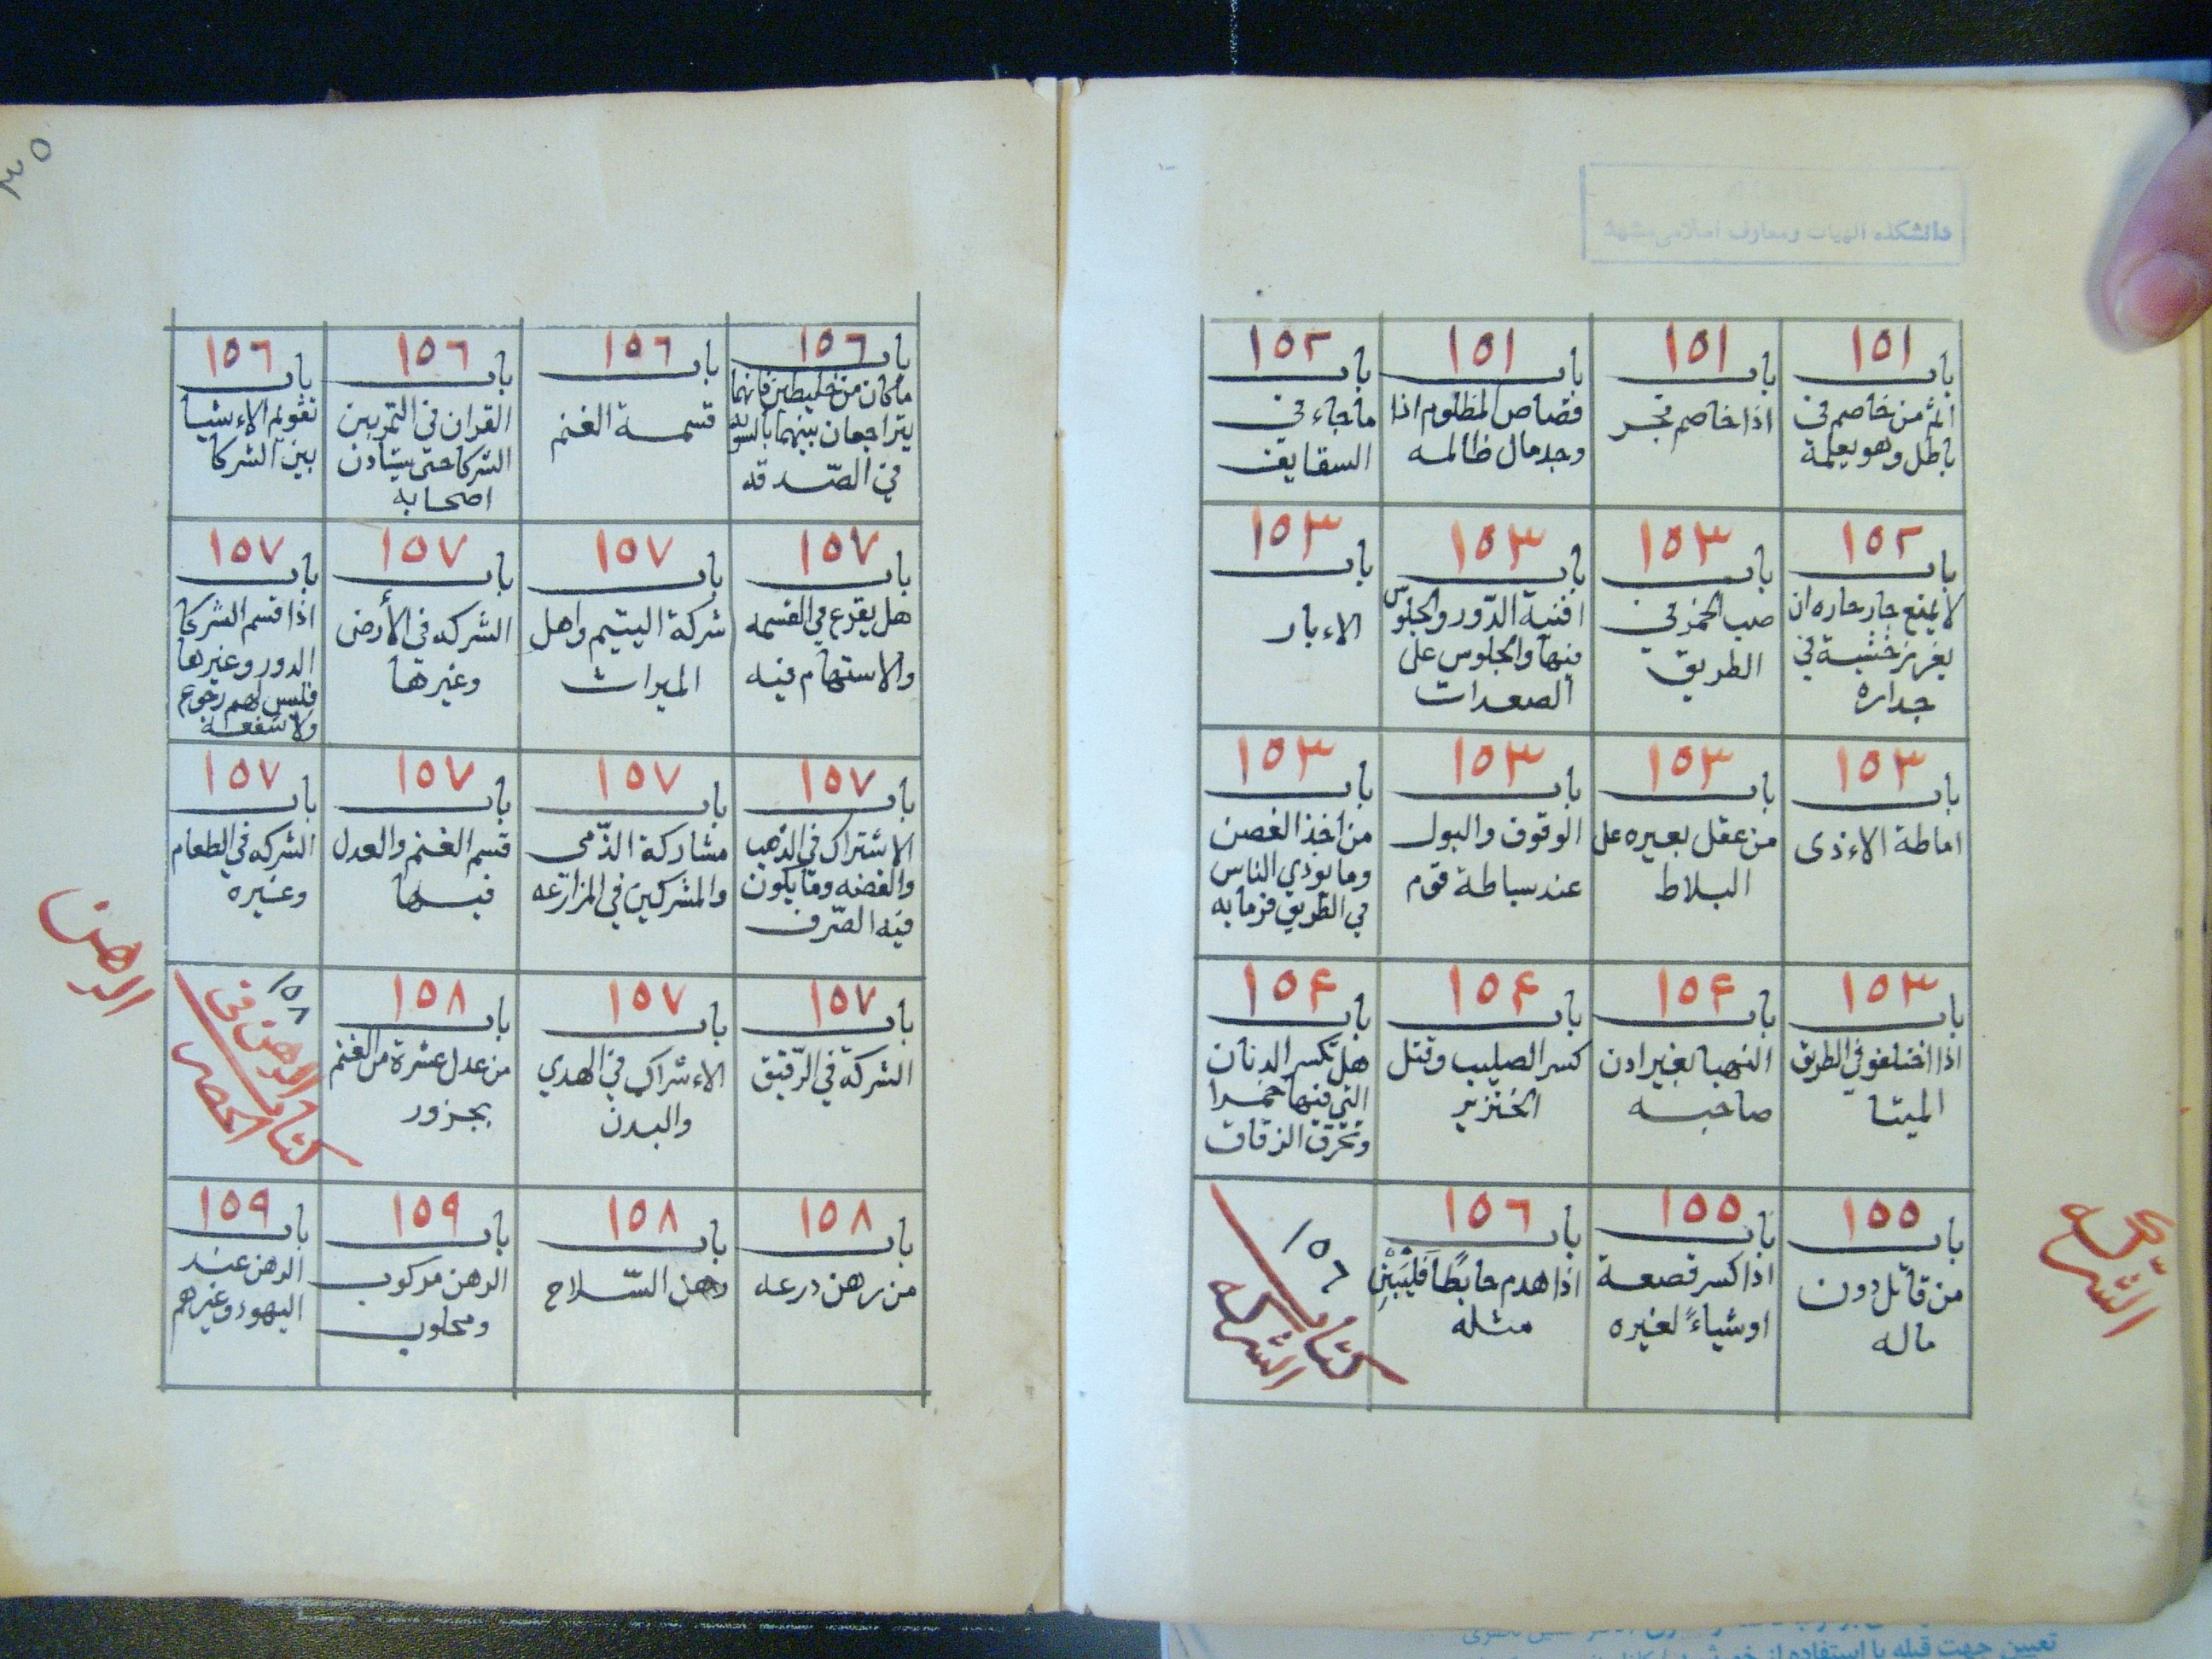 ١٥١
باب
اثم من خاصم في
باطل وهو يعلمه
١٥١
باب
اذا خاصم فجر
١٥١
باب
قصاص المظلوم اذا
وجد مال ظالمه
١٥٢
باب
ما جاء في
السقايف
١٥٢
باب
لا يمنع جار جاره ان
يغرز خشبة في
جداره
١٥٣
باب
صب الخمر في
الطريق
١٥٣
باب
افنية الدّور والجلوس
فيها والجلوس على
الصعدات
١٥٣
باب
الاءبار
١٥٣
باب
اماطة الاءذى
١٥٣
باب
من عقل بعيره على
البلاط
١٥٣
باب
الوقوف والبول
عند سباطة قوم
١٥٣
باب
من اخذ الغصن
وما يوذي الناس
في الطريق فرما به
١٥٣
باب
اذا اختلفو في الطريق
الميتا
١٥۴
باب
النهبا بغير اذن
صاحبه
١٥۴
باب
كسر الصليب وقتل
الخنزير
١٥۴
باب
هل تكسر الدنان
التي فيها خمرا
وتخرق الزقاق
١٥٥
باب
من قاتل دون
ماله
١٥٥
باب
اذا كسر قصعة
او شياءً لغيره
١٥٦
باب
اذا هدم حايطًا فليبن
مثله
١٥٦
كتاب
الشركه
الشركه
٣٥
١٥٦
باب
ما كان من خليطين فانهما
يتراجعان بينهما بالسويه
في الصّدقه
١٥٦
باب
قسمة الغنم
١٥٦
باب
القران في التمر بين
الشركا حتى يستاذن
اصحابه
١٥٦
باب
تقويم الاءشيا
بين الشركا
١٥٧
باب
هل يقرع في القسمه
والاستهام فيه
١٥٧
باب
شركة اليتيم واهل
الميراث
١٥٧
باب
الشركه في الأرض
وغيرها
١٥٧
باب
اذا قسم الشركا
الدور وغيرها
فليس لهم رجوع
ولا شفعة
١٥٧
باب
الاشتراك في الذهب
والفضه وما يكون
فيه الصّرف
١٥٧
باب
مشاركة الذّمى
والمشركين في المزارعه
١٥٧
باب
قسم الغنم والعدل
فيها
١٥٧
باب
الشركه في الطعام
وغيره
١٥٧
باب
الشركة في الرّقيق
١٥٧
باب
الاءشراك في الهدي
والبدن
١٥٨
باب
من عدل عشرة من الغنم
بجزور
١٥٨
كتاب الرهن في
الحضر
الرهن
١٥٨
باب
من رهن درعه
١٥٨
باب
رهن السّلاح
١٥٩
باب
الرهن مركوب
ومحلوب
١٥٩
باب
الرهن عند
اليهود وغيرهم